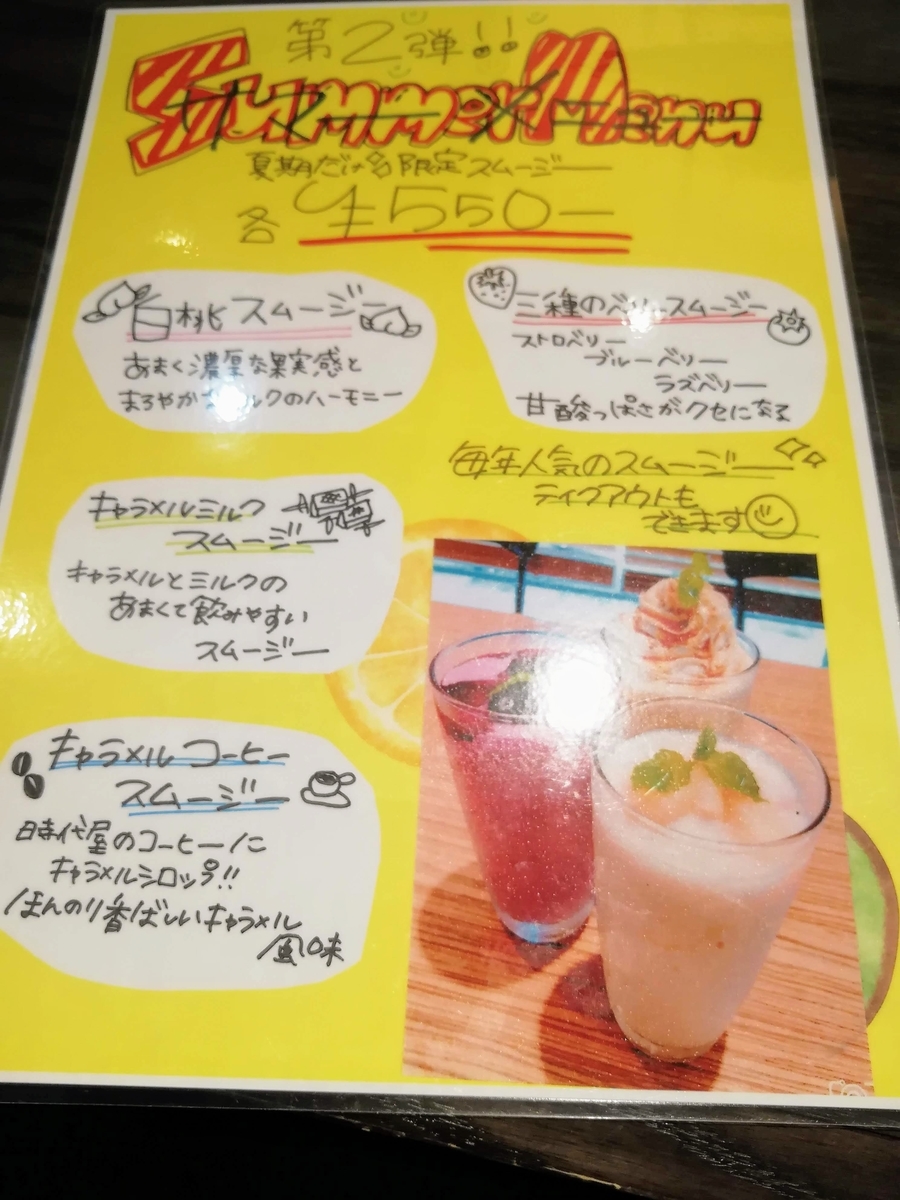 第2弾!!
Summer Menu
サマーメニュー
夏期だけの限定スムージー
各 ¥550ー
白桃スムージー
あまく濃厚な果実感と
まろやかなミルクのハーモニー
三種のベリースムージー
ストロベリー
ブルーベリー
ラズベリー
甘酸っぱさがクセになる
毎年人気のスムージー
テイクアウトも
できます
キャラメルミルク
スムージー
キャラメルとミルクの
あまくて飲みやすい
スムージー
キャラメルコーヒー
スムージー
時代屋のコーヒーに
キャラメルシロップ!!
ほんのり香ばしいキャラメル
風味